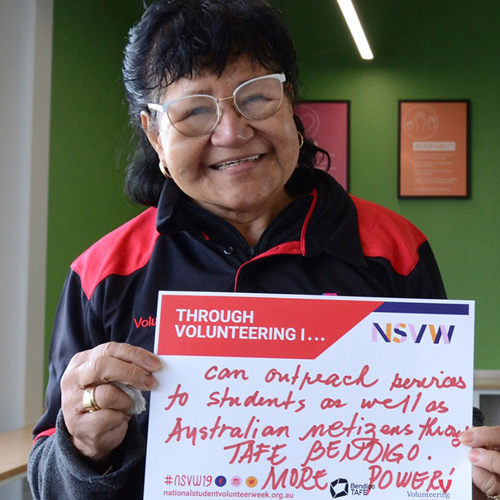 Volu
THROUGH
VOLUNTEERING I...
NSVW
can outreach services
to students as well as
Australian netizens throu
TAFE BENDIGO.
MORE POWER!
#NSVW19
nationalstudentvolunteerweek.org.au
Bendigo
TAFE
Volunteering